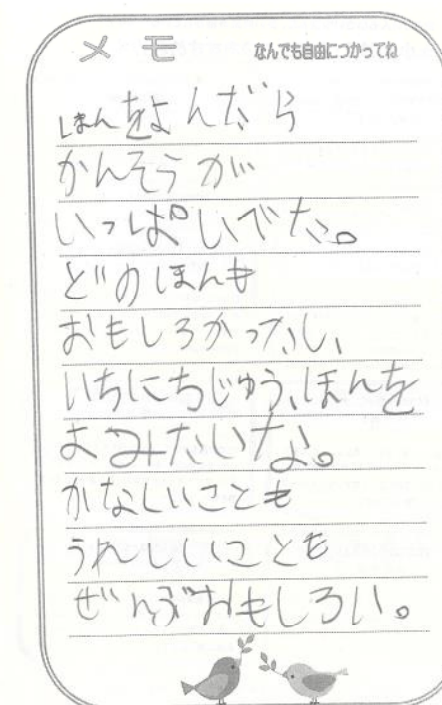 メモ なんでも自由につかってね
ほんをよんだら
かんそうが
いっぱいでた。
どのほんも
おもしろかったし、
いちにちじゅう、ほんを
よみたいな。
かなしいことも
うれしいことも
ぜんぶおもしろい。